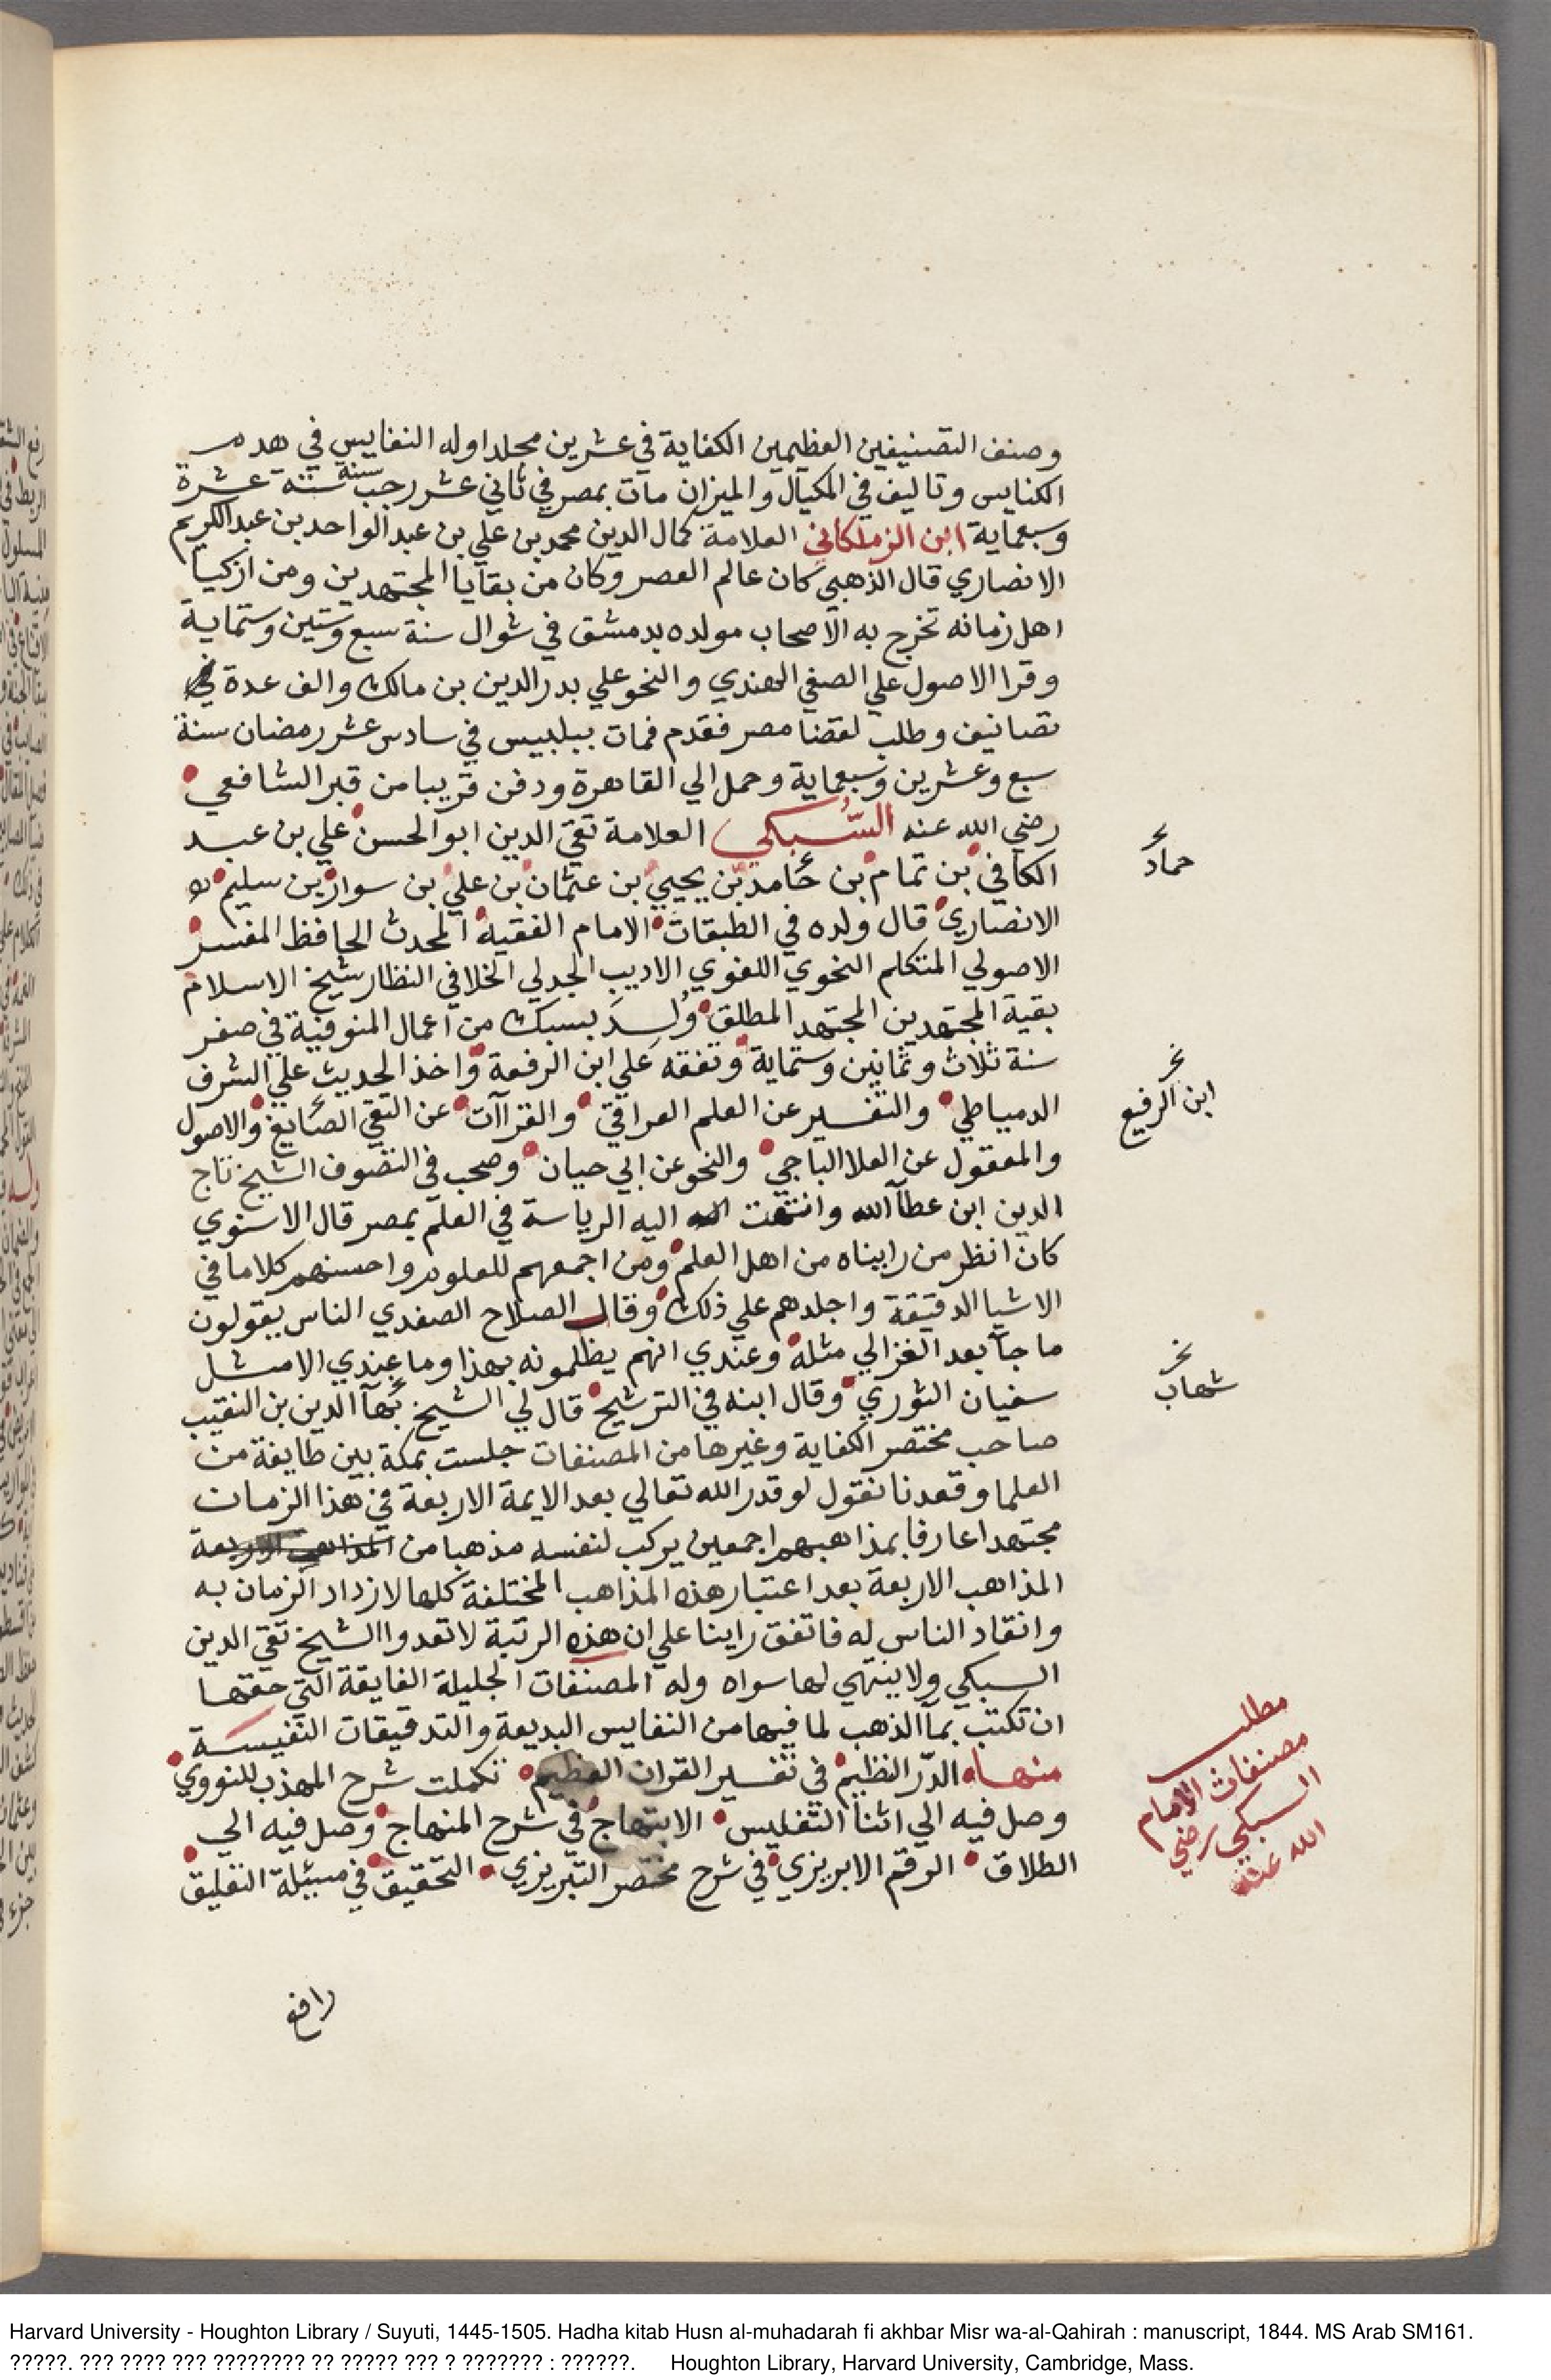 وصنف التصنيفين العظيمين الكفاية في عشرين مجلدا وله النفايس في هدم
الكنايس وتاليف في المكيال والميزان مات بمصر في ثاني عشر رجب سنة ستة عشرة
وسبعماية ابن الزملكاني العلامة كمال الدين محمد بن علي بن عبد الواحد بن عبد الكريم
الانصاري قال الذهبي كان عالم العصر وكان من بقايا المجتهدين ومن ازكيا
اهل زمانه تخرج به الاصحاب مولده بدمشق في شوال سنة سبع وستين وستماية
وقرا الاصول علي الصفي الهندي والنحو علي بدر الدين بن مالك والف عدة
تصانيف وطلب لقضا مصر فقدم فمات ببلبيس في سادس عشر رمضان سنة
سبع وعشرين وسبعماية وحمل الي القاهرة ودفن قريبا من قبر الشافعي
رضي الله عنه السُّبكي العلامة تقي الدين ابو الحسن علي بن عبد
حماد
الكافي بن تمام بن حامد بن يحيي بن عثمان بن علي بن سوار بن سليم
الانصاري قال ولده في الطبقات الامام الفقيه المحدث الحافظ المفسر
الاصولي المتكلم النحوي اللغوي الاديب الجدلي الخلافي النظار شيخ الاسلام
بقية المجتهدين المجتهد المطلق وُلِدَ بسبك من اعمال المنوفية في صفر
سنة ثلاث وثمانين وستماية وتفقه علي ابن الرفعة واخذ الحديث علي الشرف
ابن الرفيع
الدمياطي والتفسير عن العلم العراقي والقراآت عن التقي الصايغ والاصول
والمعقول عن العلا الباجي والنحو عن ابي حيان وصحب في التصوف الشيخ تاج
الدين ابن عطآ الله وانتهت اليه الرياسة في العلم بمصر قال الاسنوي
كان انظر من رايناه من اهل العلم ومن اجمعهم للعلوم واحسنهم كلاما في
الاشيا الدقيقة واجلدهم علي ذلك وقال الصلاح الصفدي الناس يقولون
ما جآ بعد الغزالي مثله وعندي انهم يظلمونه بهذا وما عندي الا مثل
شهاب
سفيان الثوري وقال ابنه في الترشيح قال لي الشيخ بهآ الدين بن النقيب
صاحب مختصر الكفاية وغيرها من المصنفات جلست بمكة بين طايفة من
العلما وقعدنا نقول لو قدر الله تعالي بعد الايمة الاربعة في هذا الزمان
مجتهدا عارفا بمذاهبهم اجمعين يركب لنفسه مذهبا من المذاهب الاربعة
المذاهب الاربعة بعد اعتبار هذه المذاهب المختلفة كلها لازداد الزمان به
وانقاد الناس له فاتفق راينا علي ان هذه الرتبة لا تعدوا الشيخ تقي الدين
السبكي ولا ينتهي لها سواه وله المصنفات الجليلة الفايقة التي حقها
ان تكتب بمآ الذهب لما فيها من النفايس البديعة والتدقيقات النفيسة
مطلب
مصنفات الامام
السبكي رضي
الله عنه
منها الدّر النظيم في تفسير القران العظيم تكملت شرح المهذب للنووي
وصل فيه الي اثنا التفليس الابتهاج في شرح المنهاج وصل فيه الي
الطلاق الرقم الابريزي في شرح مختصر التبريزي التحقيق في مسئلة التعليق
رافع
Harvard University - Houghton Library / Suyuti, 1445-1505. Hadha kitab Husn al-muhadarah fi akhbar Misr wa-al-Qahirah : manuscript, 1844. MS Arab SM161.
?????. ??? ???? ??? ???????? ?? ????? ??? ? ??????? : ??????. Houghton Library, Harvard University, Cambridge, Mass.